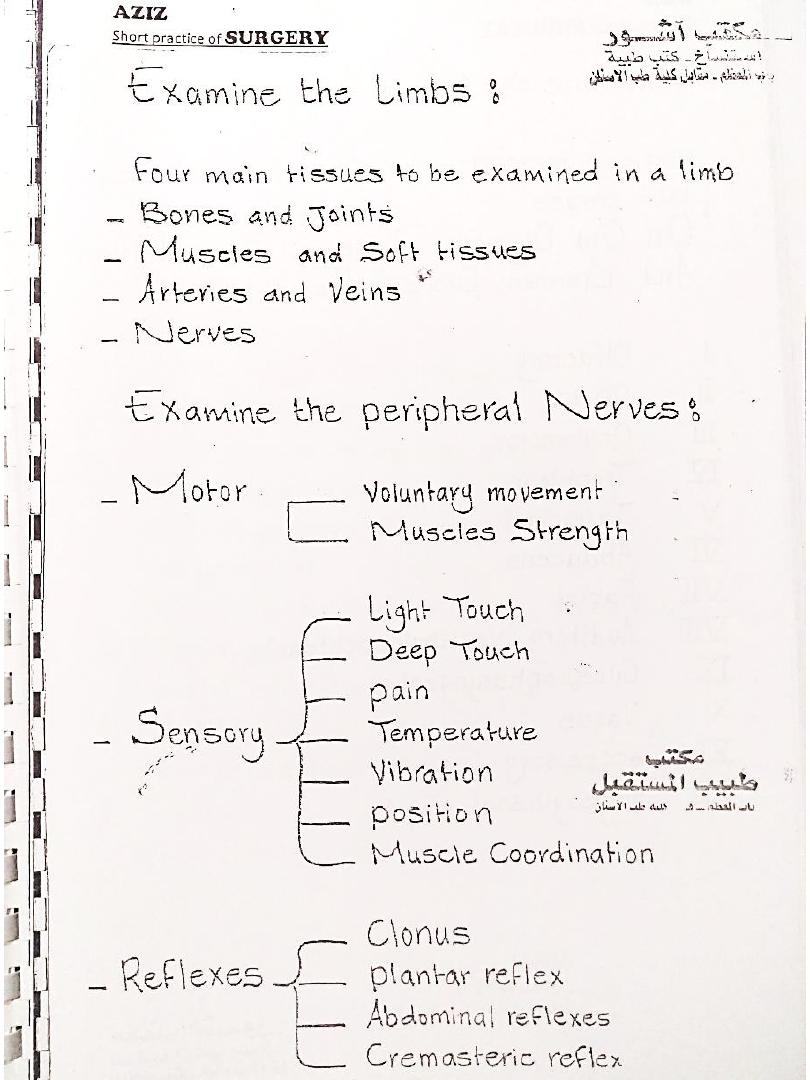 AZIZ
Short practice of SURGERY
مكتب آشور
استنساخ - كتب طبية
باب المعظم - مقابل كلية طب الاسنان
Examine the Limbs :
Four main tissues to be examined in a limb
- Bones and Joints
- Muscles and Soft tissues
- Arteries and Veins
- Nerves
Examine the peripheral Nerves :
- Motor
Voluntary movement
Muscles Strength
- Sensory
Light Touch
Deep Touch
pain
Temperature
Vibration
position
Muscle Coordination
مكتب
طبيب المستقبل
باب المعظم - كلية طب الاسنان
- Reflexes
Clonus
plantar reflex
Abdominal reflexes
Cremasteric reflex